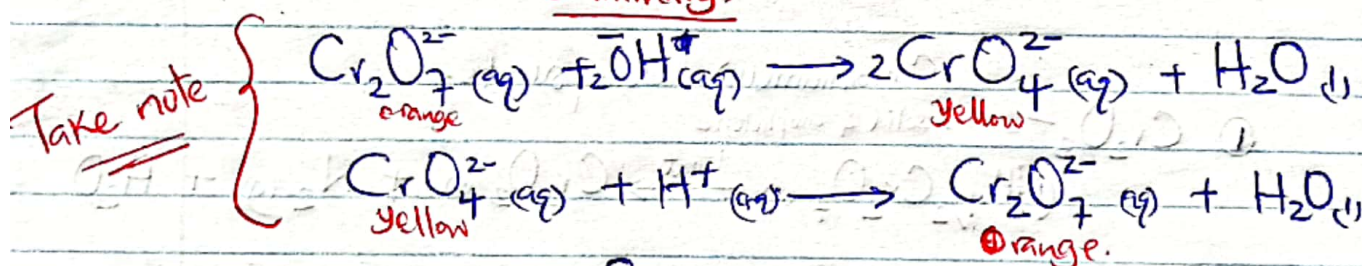 Take note
Cr₂O₇²⁻ (aq) + 2ŌH (aq) → 2CrO₄²⁻ (aq) + H₂O (l)
orange yellow
CrO₄²⁻ (aq) + H⁺ (aq) → Cr₂O₇²⁻ (aq) + H₂O (l)
yellow Orange.